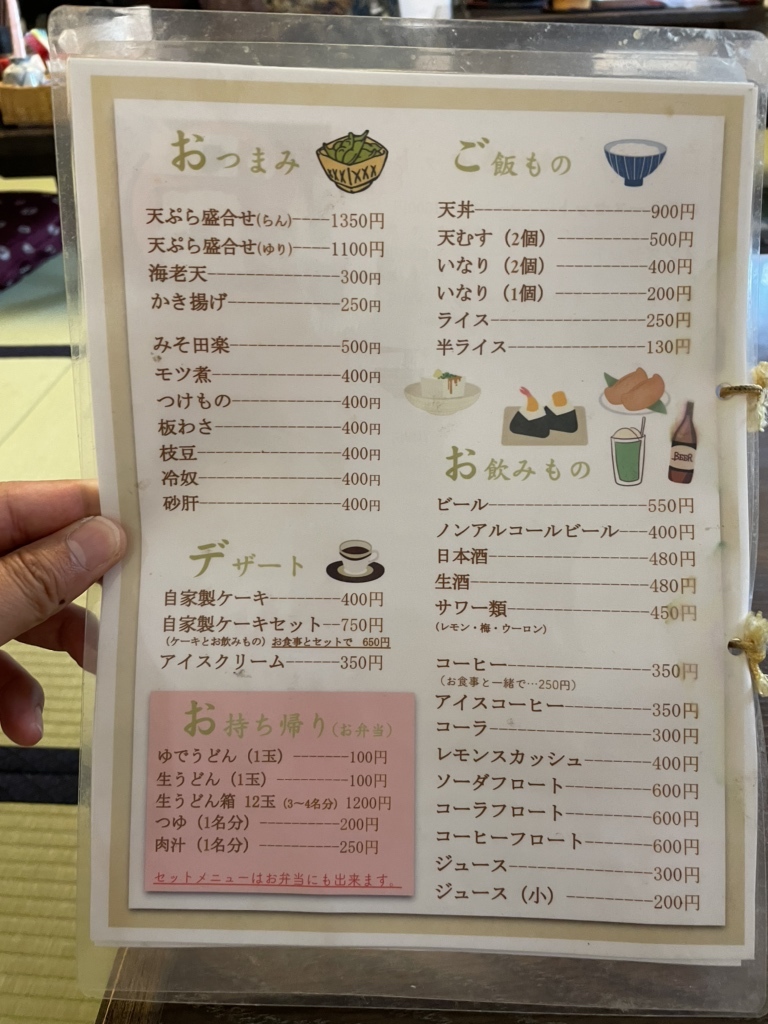 おつまみ
天ぷら盛合せ(らん)----1350円
天ぷら盛合せ(ゆり)----1100円
海老天--------------300円
かき揚げ------------250円
みそ田楽------------500円
モツ煮--------------400円
つけもの------------400円
板わさ--------------400円
枝豆----------------400円
冷奴----------------400円
砂肝----------------400円
デザート
自家製ケーキ--------400円
自家製ケーキセット--750円
(ケーキとお飲みもの) お食事とセットで 650円
アイスクリーム------350円
お持ち帰り(お弁当)
ゆでうどん(1玉) -------100円
生うどん(1玉) ---------100円
生うどん箱 12玉 (3〜4名分) 1200円
つゆ(1名分)-----------200円
肉汁(1名分)-----------250円
セットメニューはお弁当にも出来ます。
ご飯もの
天丼------------------900円
天むす(2個) ----------500円
いなり(2個) ----------400円
いなり(1個) ----------200円
ライス----------------250円
半ライス--------------130円
BEER
お飲みもの
ビール----------------550円
ノンアルコールビール---400円
日本酒----------------480円
生酒------------------480円
サワー類--------------450円
(レモン・梅・ウーロン)
コーヒー--------------350円
(お食事と一緒で…250円)
アイスコーヒー--------350円
コーラ----------------300円
レモンスカッシュ------400円
ソーダフロート--------600円
コーラフロート--------600円
コーヒーフロート------600円
ジュース--------------300円
ジュース(小) ---------200円